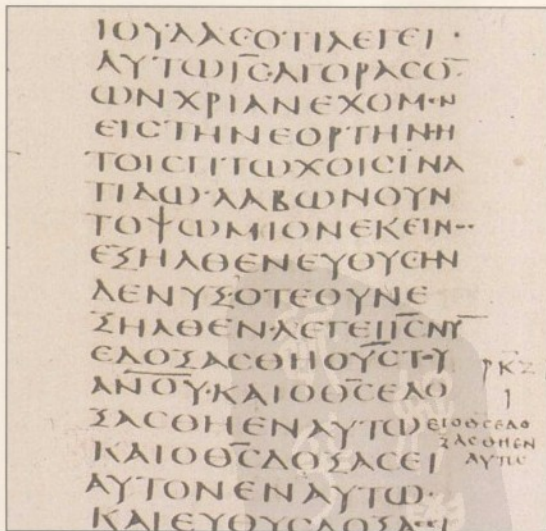 ΙΟΥΔΑϹΟΤΙΛΕΓΕΙ·
ΑΥΤΩΙ̅Ϲ̅·ΑΓΟΡΑϹΟ̅
ΩΝΧΡΙΑΝΕΧΟΜ·Ν
ΕΙϹΤΗΝΕΟΡΤΗΝΗ
ΤΟΙϹΠΤΩΧΟΙϹΙΝΑ
ΤΙΔΩ·ΛΑΒΩΝΟΥΝ
ΤΟΨΩΜΙΟΝΕΚΕΙΝ··
ΕΞΗΛΘΕΝΕΥΘΥϹΗΝ
ΔΕΝΥΞ·ΟΤΕΟΥΝΕ
ΞΗΛΘΕΝ·ΛΕΓΕΙΙ̅Ϲ̅ΝΥ̅
ΕΔΟΞΑϹΘΗΟΥ̅Ϲ̅Τ·Υ
Α̅Ν̅Ο̅Υ̅·ΚΑΙΟΘ̅Ϲ̅ΕΔΟ
ΞΑϹΘΗΕΝΑΥΤΩ
ΚΑΙΟΘ̅Ϲ̅ΔΟΞΑϹΕΙ
ΑΥΤΟΝΕΝΑΥΤΩ·
ΚΑΙΕΥΘΥϹΔΟΞΑ··Ι
ΡΚΖ
Ι
ΕΙΟΘϹΕΔΟ
ΞΑϹΘΗΕΝ
ΑΥΤΩ